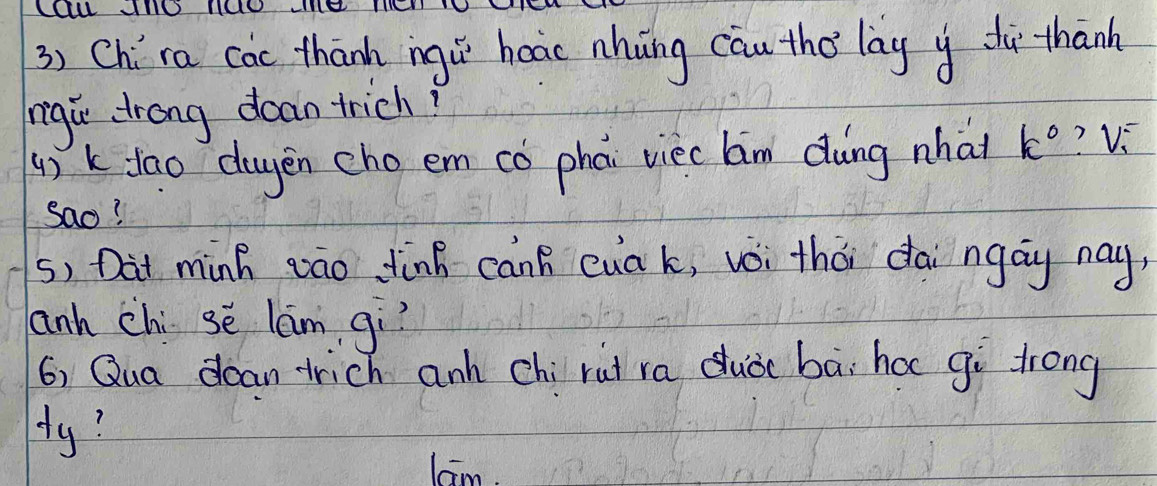 Câu thơ nào
3) Chỉ ra các thành ngữ hoặc những câu thơ lấy ý từ thành
ngữ trong đoạn trích?
4) k trao duyên cho em có phải việc làm đúng nhất k°? Vì
sao?
5) Đặt mình vào tình cảnh của k, với thời đại ngày nay,
anh chị sẽ làm gì?
6) Qua đoạn trích anh chị rút ra được bài học gì trong
ty?
làm.